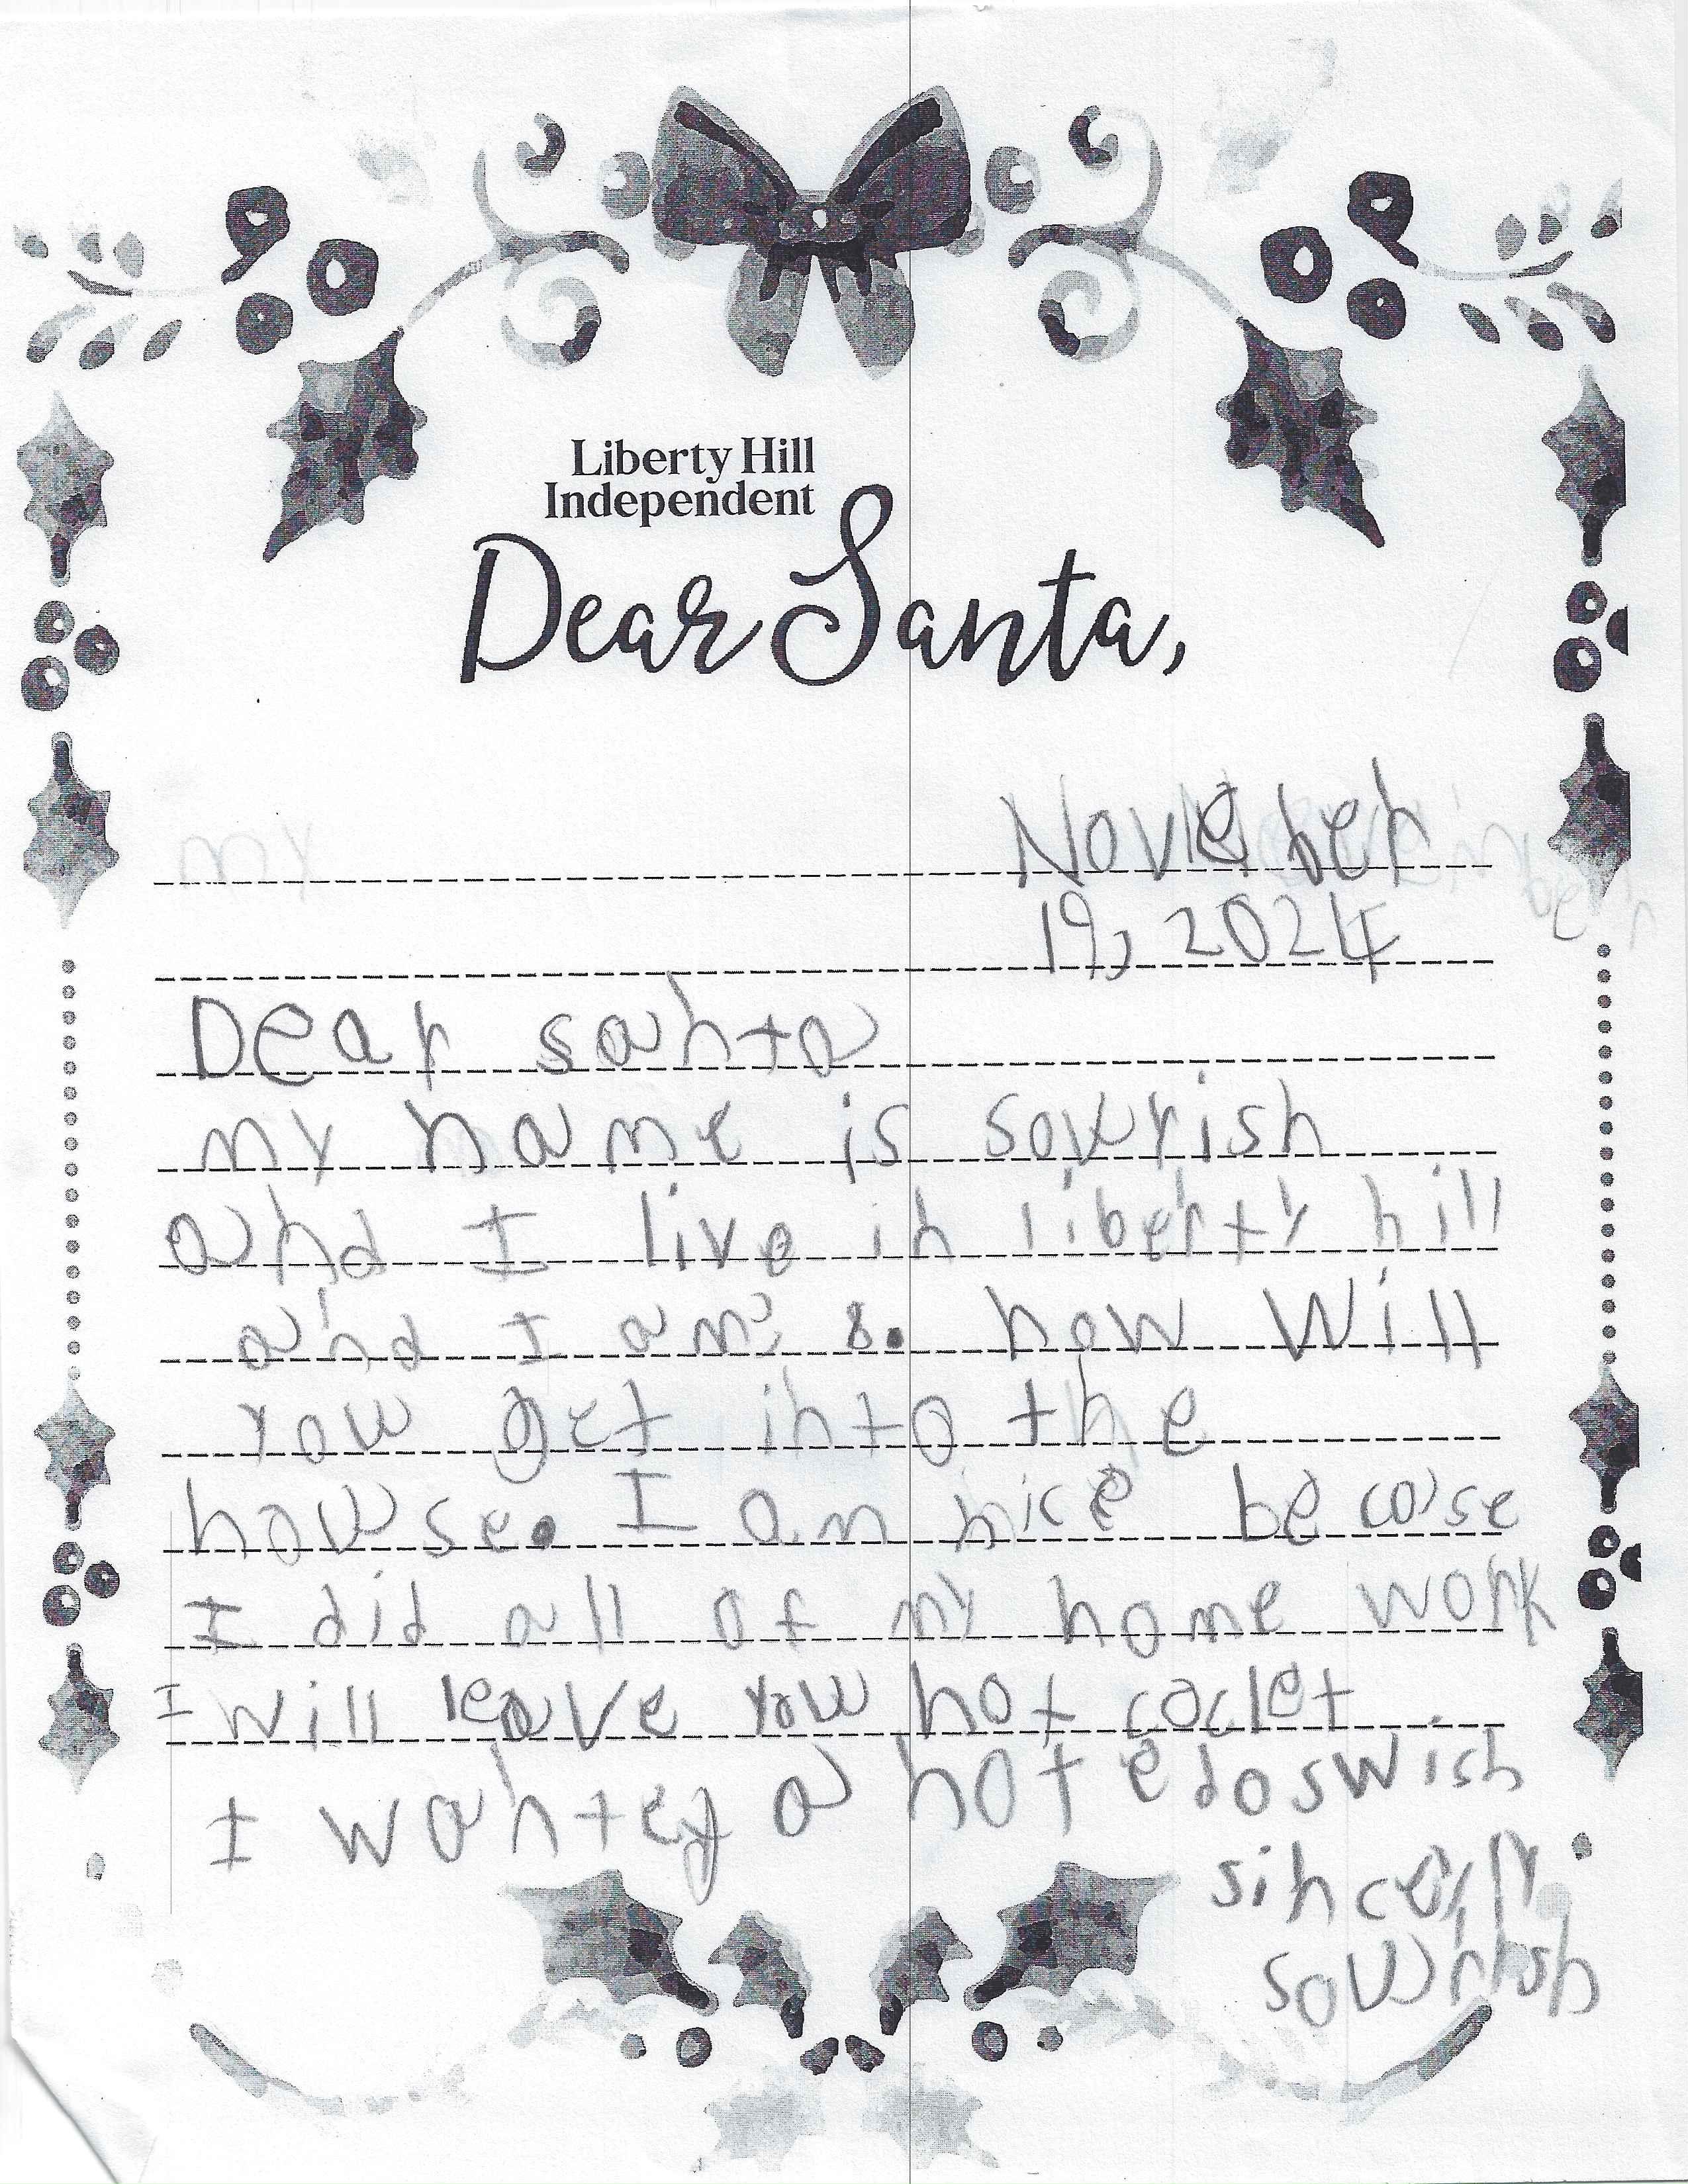 Liberty Hill
Independent
Dear Santa,
November
19, 2024
Dear santa
my name is sourish
and I live in liberty hill
and I am 8. how Will
You get into the
house. I am nice be coase
I did all of my home work
I will leave you hot coclet
I wanted a hot edoswish
sincerlly
sourish